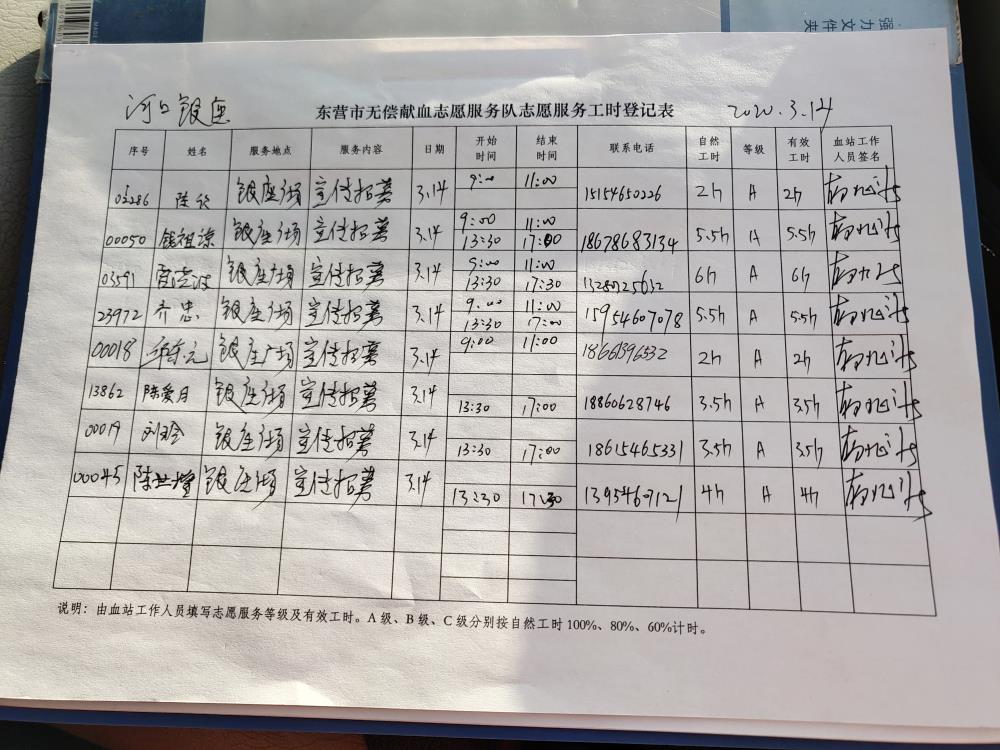 强力文件夹
河口银座 东营市无偿献血志愿服务队志愿服务工时登记表 2020.3.14
序号 姓名 服务地点 服务内容 日期 开始时间 结束时间 联系电话 自然工时 等级 有效工时 血站工作人员签名
03286 陈 银座广场 宣传招募 3.14 9:00 11:00 15154650226 2h A 2h
00050 钱祖谅 银座广场 宣传招募 3.14 9:00 11:00 18678683134 5.5h A 5.5h
13:30 17:00
03591 银座广场 宣传招募 3.14 9:00 11:00 6h A 6h
13:30 17:30
23972 齐忠 银座广场 宣传招募 3.14 9:00 11:00 15954607078 5.5h A 5.5h
13:30 17:00
00018 银座广场 宣传招募 3.14 9:00 11:00 18661396532 2h A 2h
13862 陈爱月 银座广场 宣传招募 3.14 13:30 17:00 18860628746 3.5h A 3.5h
00019 银座广场 宣传招募 3.14 13:30 17:00 18615465331 3.5h A 3.5h
00045 银座广场 宣传招募 3.14 13:30 17:30 13954607121 4h A 4h
说明：由血站工作人员填写志愿服务等级及有效工时。A 级、B 级、C 级分别按自然工时 100%、80%、60%计时。